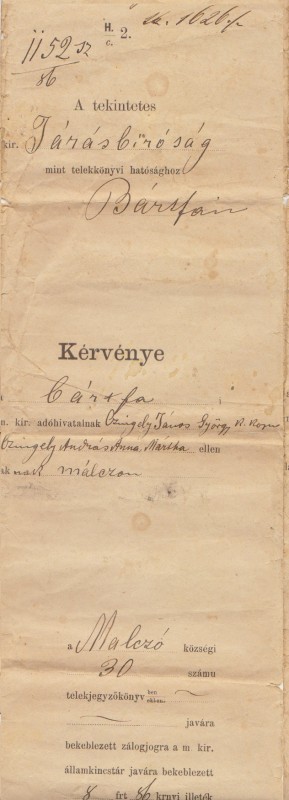 1152 sz
86
H.
c. 2.
sz. 1626
A tekintetes
kir. Járásbíróság
mint telekkönyvi hatósághoz
Bártfán
Kérvénye
a bártfa
m. kir. adóhivatalnak Czingely János György K. Kopu
Czingely András, Anna, Martha ellen
nak málczon
a Malczó községi
30 számu
telekjegyzőkönyv ben
javára
bekeblezett zálogjogra a m. kir.
államkincstár javára bekeblezett
8 frt 86 krnyi illeték